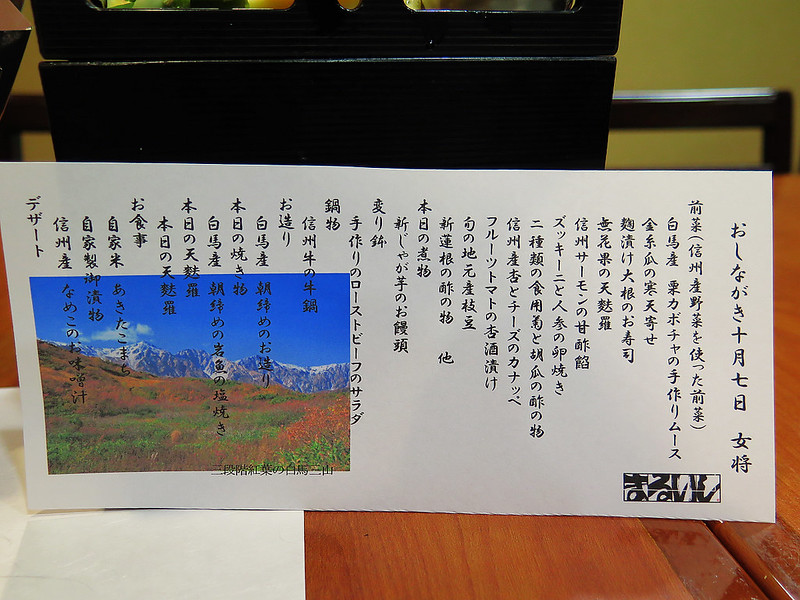 おしながき十月七日　女将
前菜(信州産野菜を使った前菜)
白馬産　栗カボチャの手作りムース
金糸瓜の寒天寄せ
麹漬け大根のお寿司
無花果の天麩羅
信州サーモンの甘酢餡
ズッキーニと人参の卵焼き
二種類の食用菊と胡瓜の酢の物
信州産杏とチーズのカナッペ
フルーツトマトの杏酒漬け
旬の地元産枝豆
新蓮根の酢の物　他
本日の煮物
新じゃが芋のお饅頭
変り鉢
手作りのローストビーフのサラダ
鍋物
信州牛の牛鍋
お造り
白馬産　朝締めのお造り
本日の焼き物
白馬産　朝締めの岩魚の塩焼き
本日の天麩羅
本日の天麩羅
お食事
自家米　あきたこまち
自家製御漬物
信州産　なめこのお味噌汁
デザート
三段階紅葉の白馬三山